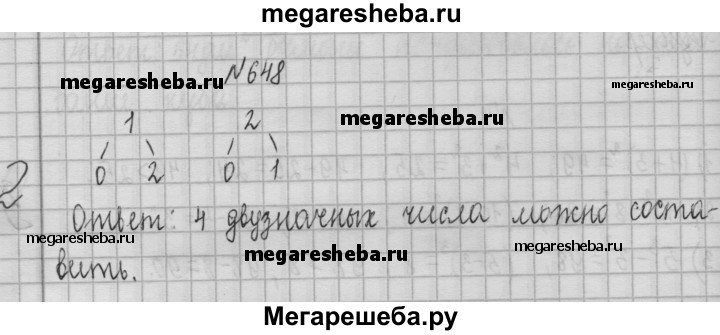 megaresheba.ru
№648
megaresheba.ru
megaresheba.ru
1 2
megaresheba.ru
0 2 0 1
Ответ: 4 двузначных числа можно соста-
megaresheba.ru
megaresheba.ru
вить.
Мегарешеба.ру